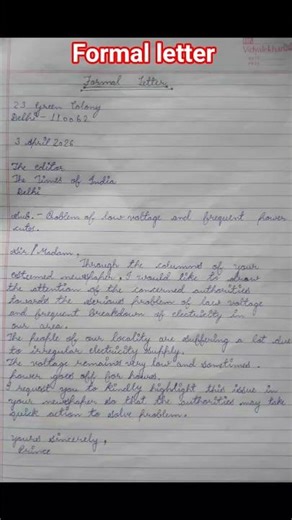 Formal letter
Formal Letter
23 Green Colony
Delhi - 110062
3 April 2026
The Editor
The Times of India
Delhi
Sub. - Problem of low voltage and frequent power
cuts.
Sir/Madam,
Through the columns of your
esteemed newspaper, I would like to draw
the attention of the concerned authorities
towards the serious problem of low voltage
and frequent breakdown of electricity in
our area.
The people of our locality are suffering a lot due
to irregular electricity supply.
The voltage remains very low and sometimes
power goes off for hours.
I request you to kindly highlight this issue in
your newspaper so that the authorities may take
quick action to solve problem.
Yours sincerely,
Prince